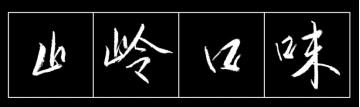 山岭口味